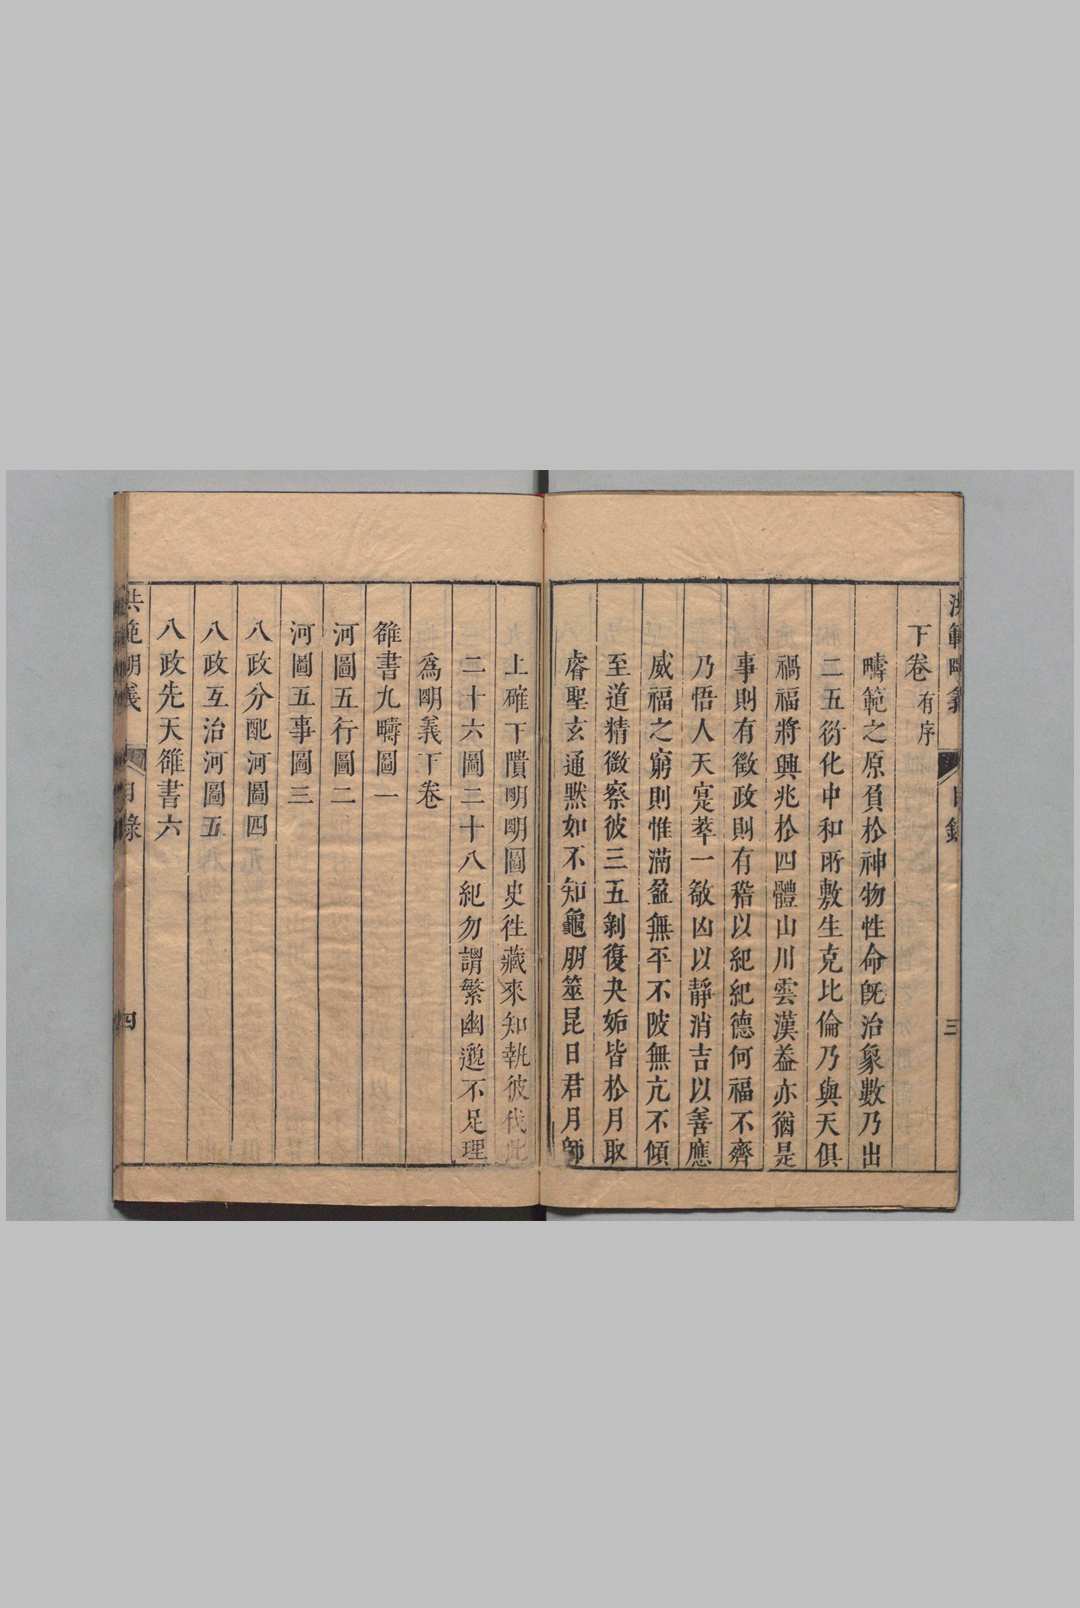 洪範明義 目錄 三
下卷 有序
疇範之原負於神物性命旣治象數乃出
二五衍化中和所敷生克比倫乃與天俱
禍福將興兆於四體山川雲漢蓋亦猶是
事則有徵政則有稽以紀紀德何福不齊
乃悟人天寔萃一敬凶以靜消吉以善應
威福之窮則惟滿盈無平不陂無亢不傾
至道精微察彼三五剝復夬姤皆於月取
睿聖玄通默如不知龜朋筮昆日君月師
上確下隤明明圖史往藏來知執彼伐此
二十六圖二十八紀勿謂繁幽邈不足理
爲明義下卷
雒書九疇圖一
河圖五行圖二
河圖五事圖三
八政分配河圖四
八政互治河圖五
八政先天雒書六
洪範明義 目錄 四